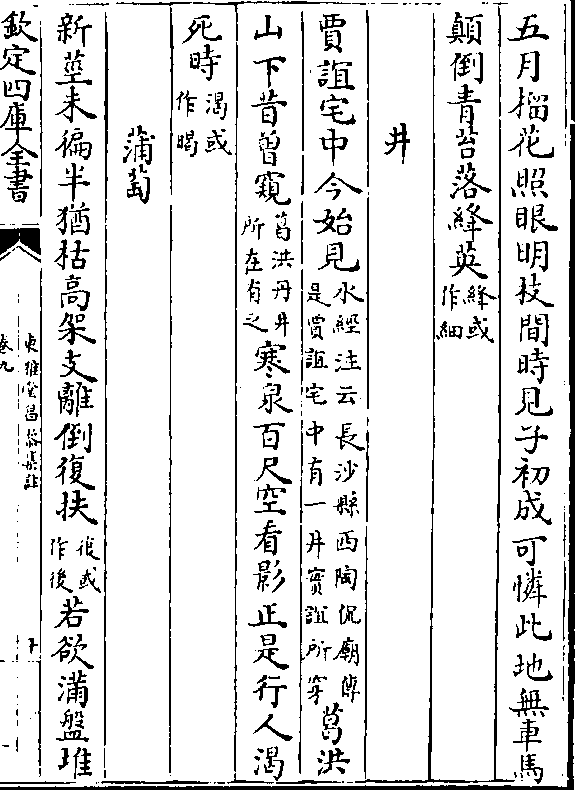 五月榴花照眼明枝間時見子初成可憐此地無車馬
顛倒青苔落絳英絳或作細
井
賈誼宅中今始見水經注云長沙縣西陶侃廟傳是賈誼宅中有一井實誼所穿葛洪
山下昔曾窺葛洪丹井所在有之寒泉百尺空看影正是行人渴
死時渴或作暍
蒲萄
新莖未徧半猶枯高架支離倒復扶復或作後若欲滿盤堆
欽定四庫全書
東雅堂昌黎集註
卷九